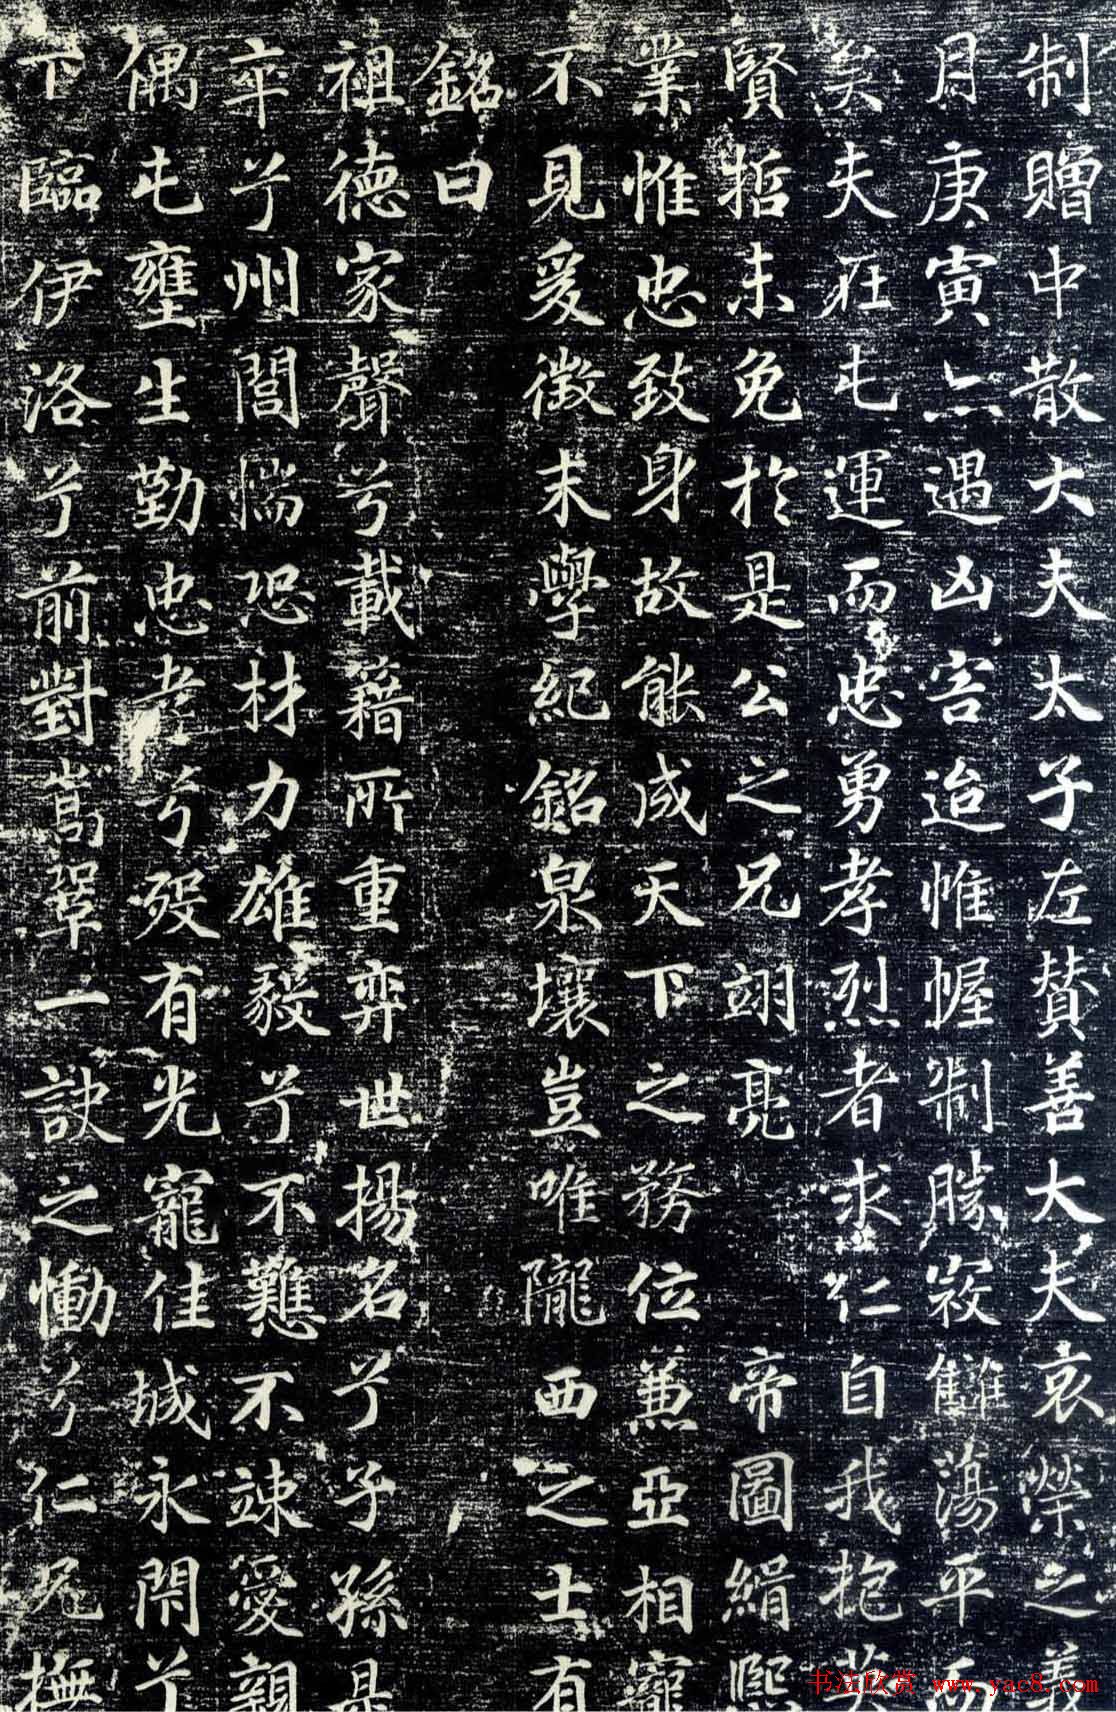 制贈中散大夫太子左賛善大夫哀榮之義
月庚寅亦遇凶害迨惟幄制勝寇讎蕩平
矣夫在屯運而忠勇孝烈者求仁自我抱
賢哲未免於是公之兄翊亮帝圖緝熙
業惟忠致身故能成天下之務位兼亞相寵
不見爰徵末學紀銘泉壤豈唯隴西之士有
銘曰
祖德家聲兮載籍所重弈世揚名兮子孫是
卒兮州閭懦恐材力雄毅兮不難不竦愛親
偶屯壅生勤忠孝兮歿有光寵佳城永閇兮
下臨伊洛兮前對嵩鞏一訣之慟兮仁兄撫
书法欣赏 www.yac8.com